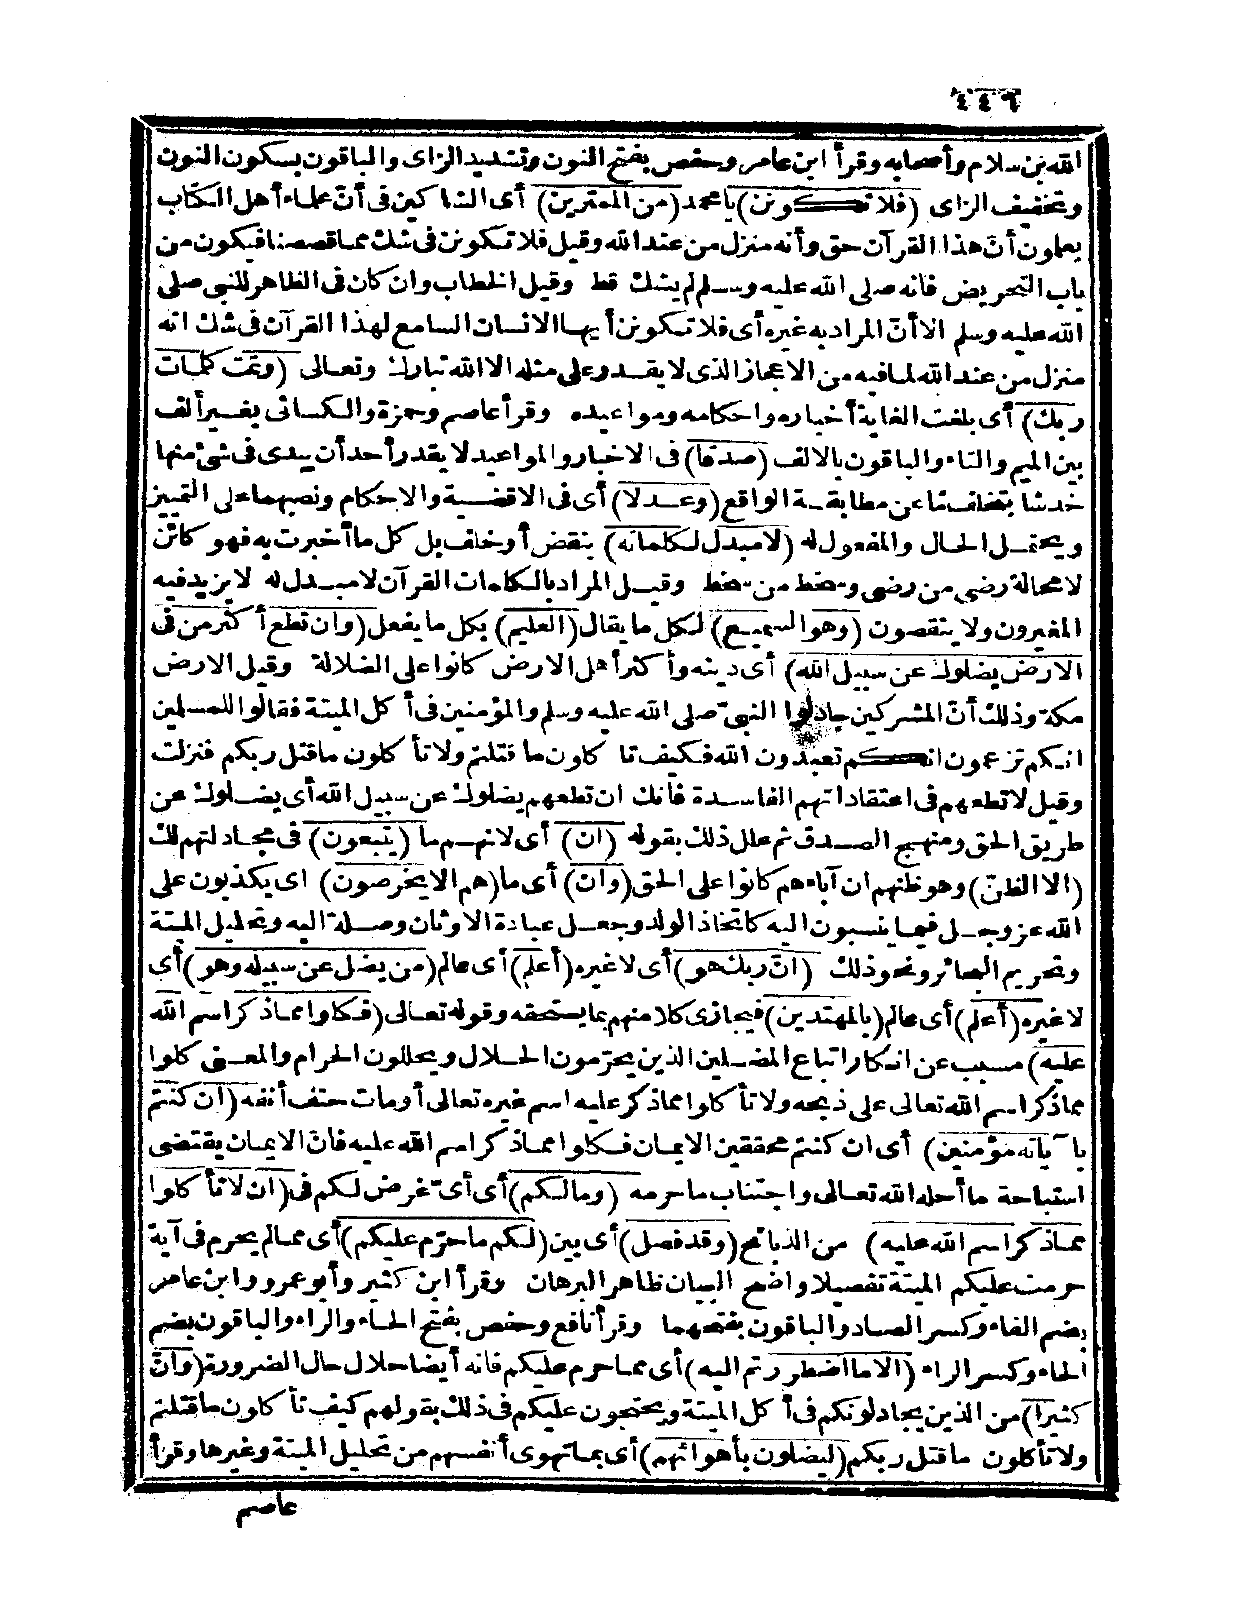 ٤٤٦
الله بن سلام وأصحابه وقرأ ابن عامر وحفص بفتح النون وتشديد الزاى والباقون بسكون النون
وتخفيف الزاى (فلا تكونن) يا محمد (من الممترين) أى الشاكين فى أنّ علماء أهل الكتاب
يعلمون أنّ هذا القرآن حق وأنه منزل من عند الله وقيل فلا تكونن فى شك مما قصصنا فيكون من
باب التحريض فانه صلى الله عليه وسلم لم يشك قط وقيل الخطاب وان كان فى الظاهر للنبى صلى
الله عليه وسلم الا أنّ المراد به غيره أى فلا تكونن أيها الانسان السامع لهذا القرآن فى شك انه
منزل من عند الله لما فيه من الاعجاز الذى لا يقدر على مثله الا الله تبارك وتعالى (وتمت كلمات
ربك) أى بلغت الغاية أخباره واحكامه ومواعيده وقرأ عاصم وحمزة والكسائى بغير ألف
بين الميم والتاء والباقون بالالف (صدقا) فى الاخبار والمواعيد لا يقدر أحد أن يبدى فى شئ منها
خدشا بتخلف ما عن مطابقة الواقع (وعدلا) أى فى الاقضية والاحكام ونصبهما على التمييز
ويحتمل الحال والمفعول له (لا مبدل لكلماته) بنقض أو خلف بل كل ما أخبرت به فهو كائن
لا محالة رضى من رضى وسخط من سخط وقيل المراد بالكلمات القرآن لا مبدل له لا يزيد فيه
المغيرون ولا ينقصون (وهو السميع) لكل ما يقال (العليم) بكل ما يفعل (وان تطع أكثر من فى
الارض يضلوك عن سبيل الله) أى دينه وأكثر أهل الارض كانوا على الضلالة وقيل الارض
مكة وذلك أنّ المشركين جادلوا النبىّ صلى الله عليه وسلم والمؤمنين فى أكل الميتة فقالوا للمسلمين
انكم تزعمون انكم تعبدون الله فكيف تأكلون ما قتلتم ولا تأكلون ما قتل ربكم فنزلت
وقيل لا تطعهم فى اعتقاداتهم الفاسدة فانك ان تطعهم يضلوك عن سبيل الله أى يضلوك عن
طريق الحق ومنهج الصدق ثم علل ذلك بقوله (ان) أى لانهم ما (يتبعون) فى مجادلتهم لك
(الا الظنّ) وهو ظنهم ان آباءهم كانوا على الحق (وان) أى ما (هم الا يخرصون) اى يكذبون على
الله عز وجل فيما ينسبون اليه كاتخاذ الولد وجعل عبادة الاوثان وصلة اليه وتحليل الميتة
وتحريم البحائر ونحو ذلك (انّ ربك هو) أى لا غيره (أعلم) أى عالم (من يضل عن سبيله وهو) أى
لا غيره (أعلم) أى عالم (بالمهتدين) فيجازى كلا منهم بما يستحقه وقوله تعالى (فكلوا مما ذكر اسم الله
عليه) مسبب عن انكار اتباع المضلين الذين يحرّمون الحلال ويحللون الحرام والمعنى كلوا
مما ذكر اسم الله تعالى على ذبحه ولا تأكلوا مما ذكر عليه اسم غيره تعالى أو مات حتف أنفه (ان كنتم
بآياته مؤمنين) أى ان كنتم محققين الايمان فكلوا مما ذكر اسم الله عليه فانّ الايمان يقتضى
استباحة ما أحله الله تعالى واجتناب ما حرمه (وما لكم) أى أىّ غرض لكم فى (ان لا تأكلوا
مما ذكر اسم الله عليه) من الذبائح (وقد فصل) أى بين (لكم ما حرّم عليكم) أى مما لم يحرم فى آية
حرمت عليكم الميتة تفصيلا واضح البيان ظاهر البرهان وقرأ ابن كثير وأبو عمرو وابن عامر
بضم الفاء وكسر الصاد والباقون بفتحهما وقرأ نافع وحفص بفتح الحاء والراء والباقون بضم
الحاء وكسر الراء (الا ما اضطررتم اليه) أى مما حرم عليكم فانه أيضا حلال حال الضرورة (وانّ
كثيرا) من الذين يجادلونكم فى أكل الميتة ويحتجون عليكم فى ذلك بقولهم كيف تأكلون ما قتلتم
ولا تأكلون ما قتل ربكم (ليضلون بأهوائهم) أى بما تهوى أنفسهم من تحليل الميتة وغيرها وقرأ
عاصم